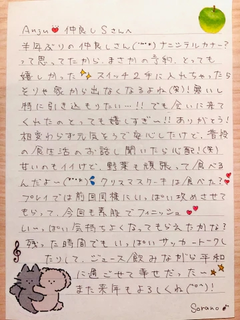 Anju❤仲良しSさんへ
半年ぶりの仲良しさん(*^^*)ナニシテルカナー?
って思ってたから、まさかの予約、とっても
嬉しかった✨スイッチ2手に入れちゃったら
そりゃ家から出なくなるよね(笑)!寒いし
特に引き込もりたいー!!でも会いに来て
くれたのとっても嬉しすぎー!!ありがとう!
相変わらず元気そうで安心したけど、普段
の食生活のお話し聞いたら心配!(笑)
甘いのもイイけど、野菜も頑張って食べる
んだよー(*^^*)クリスマスケーキは食べた?
プレイでは前回同様にいっぱい攻めさせて
もらって、今回も素股でフィニッシュ
いーっぱい気持ちよくなってもらえたかな?
残った時間でもいっぱいサッカートーク
したりして、ジュース飲みながら平和
に過ごせて幸せだったー
また来年もよろしくね(^^)!
Sorano♪